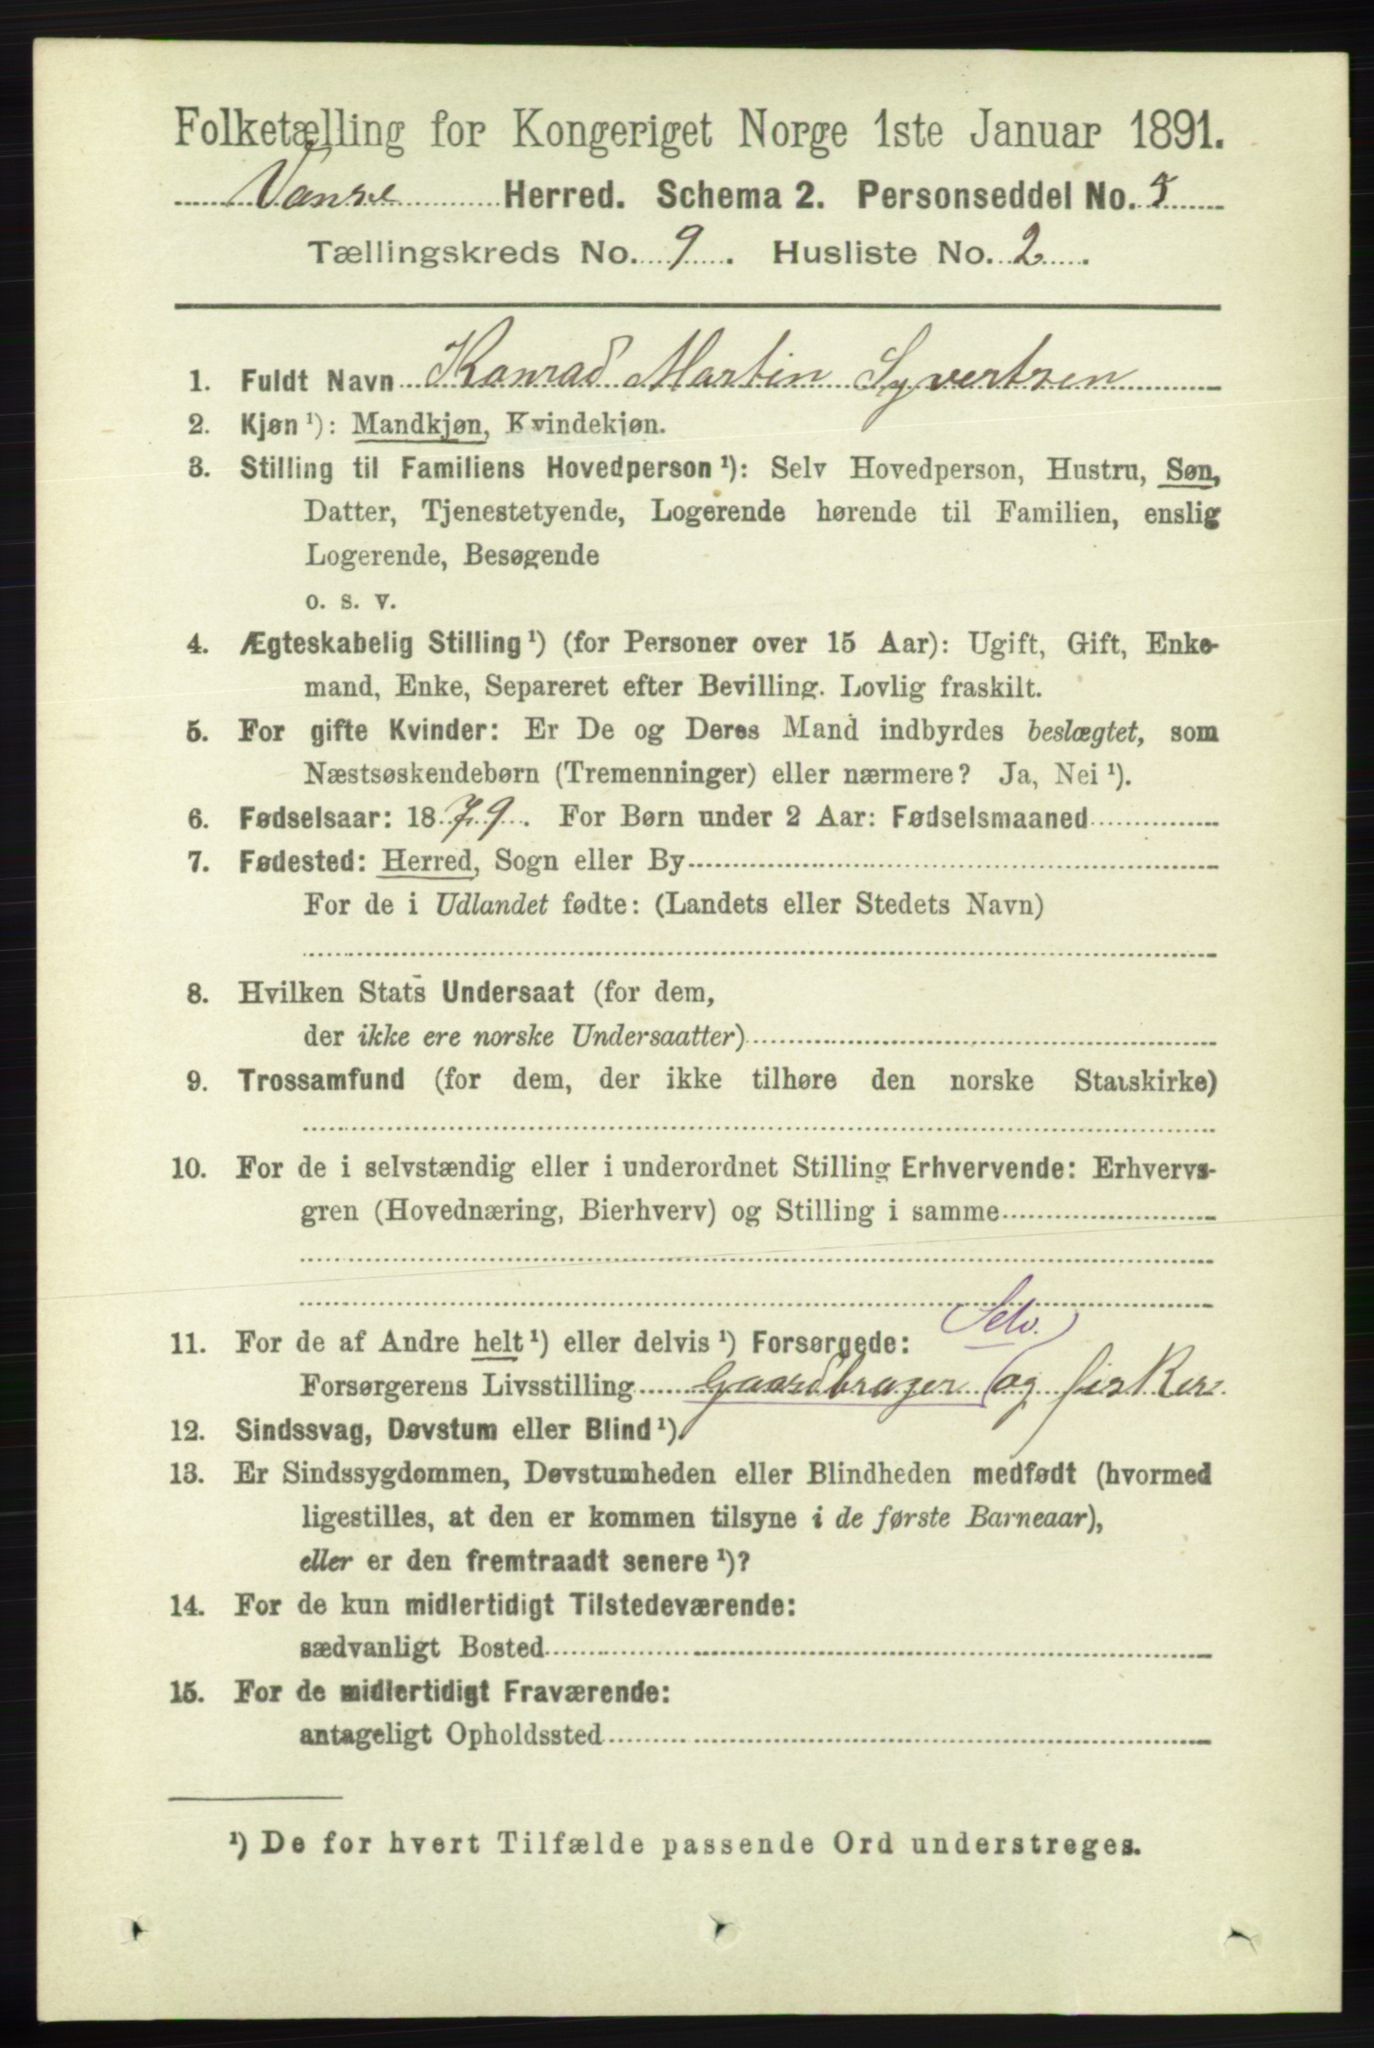 Folketælling for Kongeriget Norge 1ste Januar 1891.
Vanse Herred. Schema 2. Personseddel No. 5
Tællingskreds No. 9. Husliste No. 2.
1. Fuldt Navn Konrad Martin Syvertsen
2. Kjøn ¹): Mandkjøn, Kvindekjøn.
3. Stilling til Familiens Hovedperson ¹): Selv Hovedperson, Hustru, Søn,
Datter, Tjenestetyende, Logerende hørende til Familien, enslig
Logerende, Besøgende
o. s. v.
4. Ægteskabelig Stilling ¹) (for Personer over 15 Aar): Ugift, Gift, Enke-
mand, Enke, Separeret efter Bevilling. Lovlig fraskilt.
5. For gifte Kvinder: Er De og Deres Mand indbyrdes beslægtet, som
Næstsøskendebørn (Tremenninger) eller nærmere? Ja, Nei ¹).
6. Fødselsaar: 1879. For Børn under 2 Aar: Fødselsmaaned
7. Fødested: Herred, Sogn eller By
For de i Udlandet fødte: (Landets eller Stedets Navn)
8. Hvilken Stats Undersaat (for dem,
der ikke ere norske Undersaatter)
9. Trossamfund (for dem, der ikke tilhøre den norske Statskirke)
10. For de i selvstændig eller i underordnet Stilling Erhvervende: Erhvervs-
gren (Hovednæring, Bierhverv) og Stilling i samme
Selv.
11. For de af Andre helt ¹) eller delvis ¹) Forsørgede:
Forsørgerens Livsstilling Gaardbruger (og fisker.
12. Sindssvag, Døvstum eller Blind ¹).
13. Er Sindssygdommen, Døvstumheden eller Blindheden medfødt (hvormed
ligestilles, at den er kommen tilsyne i de første Barneaar),
eller er den fremtraadt senere ¹)?
14. For de kun midlertidigt Tilstedeværende:
sædvanligt Bosted
15. For de midlertidigt Fraværende:
antageligt Opholdssted
¹) De for hvert Tilfælde passende Ord understreges.